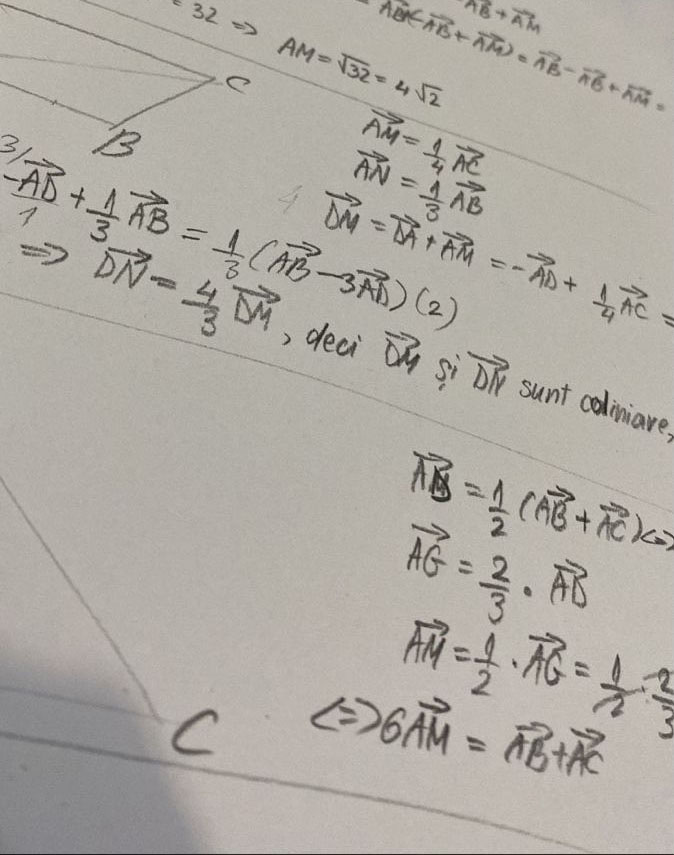 AB + AM
= 32 => AM = √32 = 4√2
AB + AM) = AB - AB + AM =
C
B
AM = 1/4 AC
AN = 1/3 AB
DM = DA + AM = -AD + 1/4 AC =
3/
-AD/1 + 1/3 AB = 1/3 (AB - 3AD) (2)
=> DN = 4/3 DM, deci DM și DN sunt coliniare,
= 1/2 (AB + AC) <=>
AG = 2/3 · AD
AM = 1/2 · AG = 1/2 · 2/3
C
<=> 6AM = AB + AC